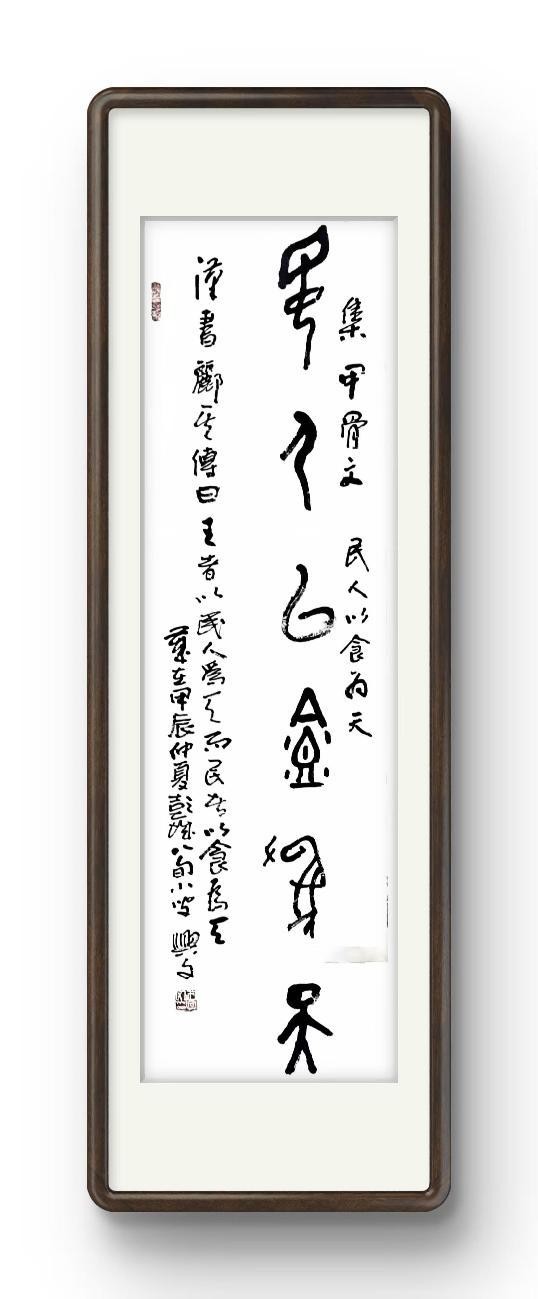 集甲骨文 民人以食为天
民人以食為天
漢書酈食其傳曰王者以民人為天而民者以食為天
歲在甲辰仲夏彭城八旬小叟興文